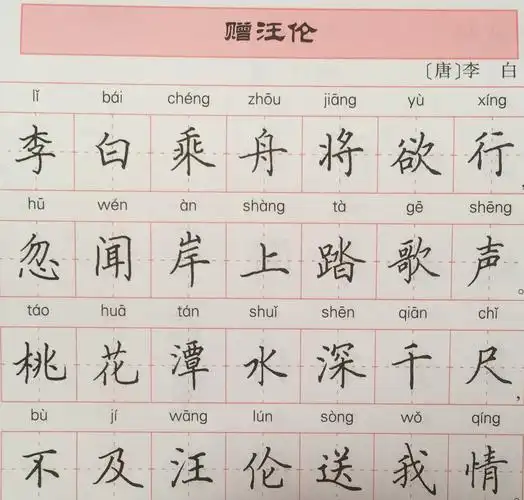 赠汪伦
〔唐〕李 白
lǐ bái chéng zhōu jiāng yù xíng
李白乘舟将欲行，
hū wén àn shàng tà gē shēng
忽闻岸上踏歌声。
táo huā tán shuǐ shēn qiān chǐ
桃花潭水深千尺，
bù jí wāng lún sòng wǒ qíng
不及汪伦送我情